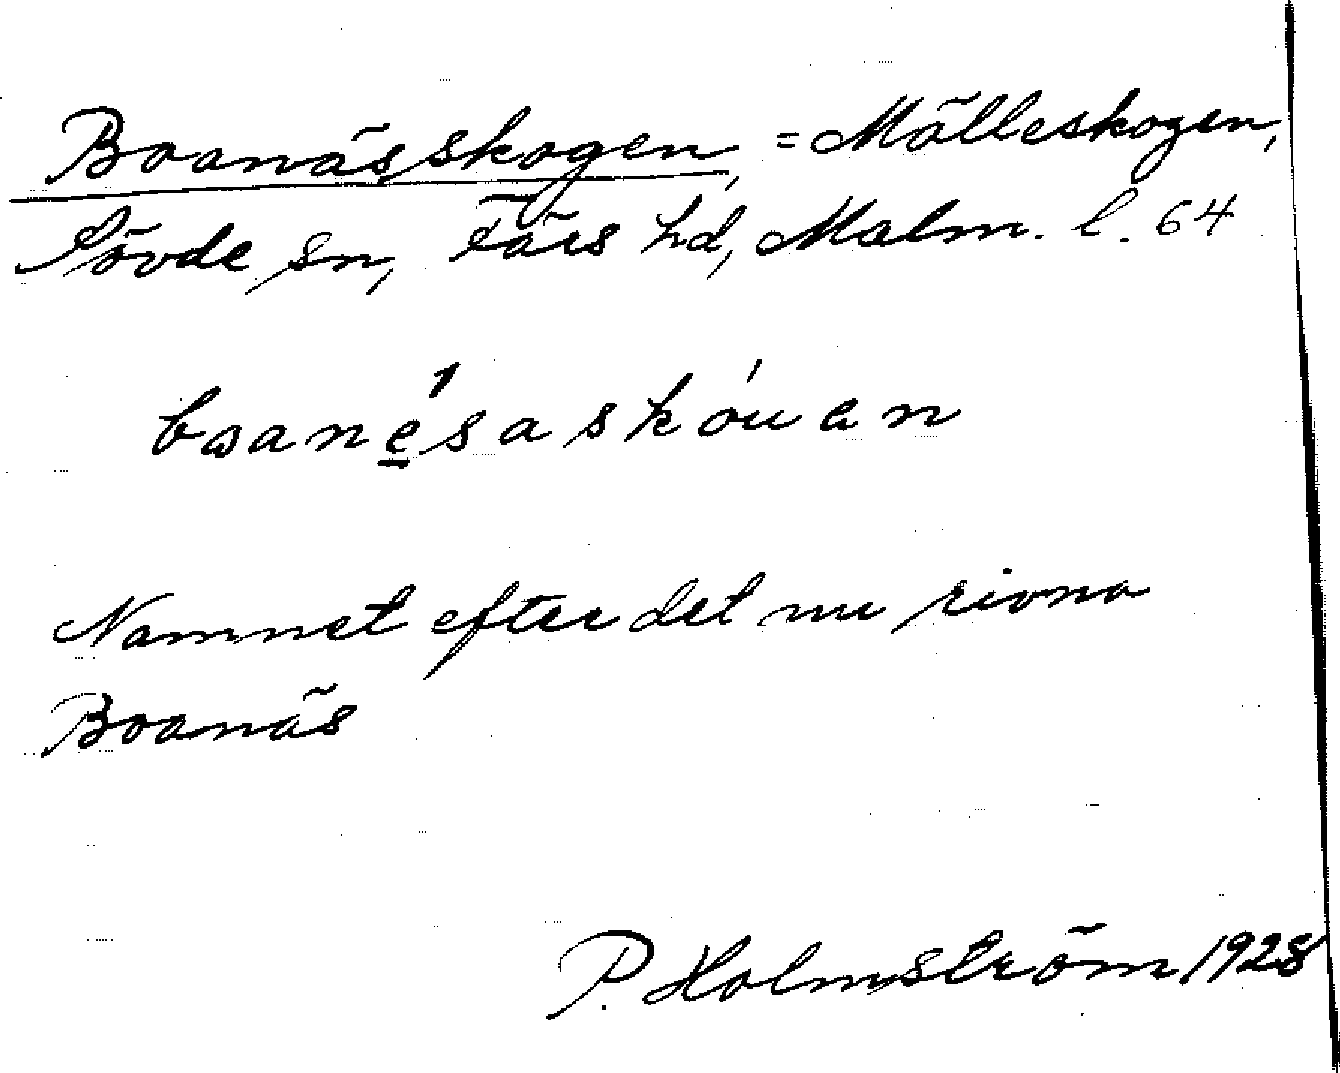 Boanässkogen, = Mölleskogen,
Sövde sn, Färs hd, Malm. l. 64
boanésaskóuen
Namnet efter det nu rivna
Boanäs
P. Holmström 1928